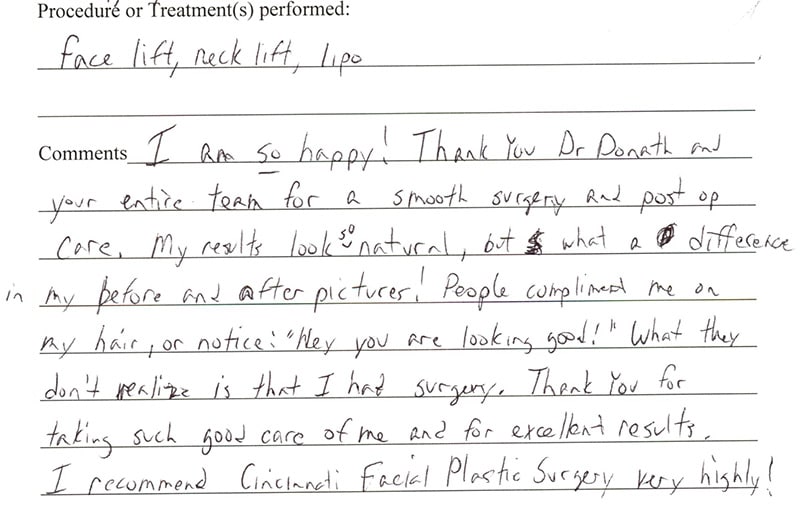 Procedure or Treatment(s) performed:
Face lift, neck lift, lipo
Comments I am so happy! Thank You Dr Donath and
your entire team for a smooth surgery and post op
care. My results look so natural, but what a difference
in my before and after pictures! People compliment me on
my hair, or notice: "Hey you are looking good!" What they
don't realize is that I had surgery. Thank You for
taking such good care of me and for excellent results.
I recommend Cincinnati Facial Plastic Surgery very highly!